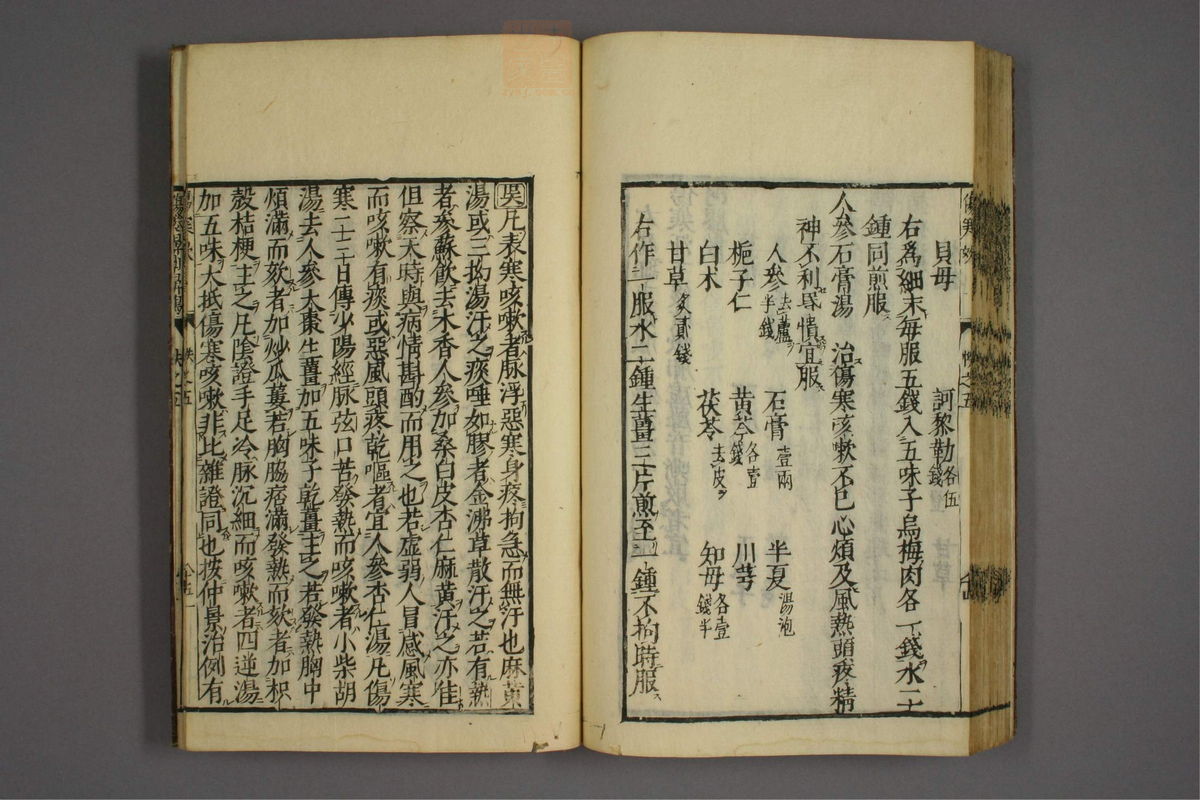 貝母　訶黎勒各伍錢
右爲細末每服五錢入五味子烏梅肉各一錢水二
鍾同煎服
人參石膏湯　治傷寒咳嗽不已心煩及風熱頭疼精
神不利昏憒宜服
人參去蘆半錢　石膏壹兩　半夏湯泡
梔子仁　黃芩各壹錢　川芎
白朮　茯苓去皮　知母各壹錢半
甘草炙貳錢
右作一服水二鍾生薑三片煎至一鍾不拘時服
吳凡表寒咳嗽者脉浮惡寒身疼拘急而無汗也麻黃
湯或三拗湯汗之痰唾如膠者金沸草散汗之若有熱
者參蘇飲去木香人參加桑白皮杏仁麻黃汗之亦佳
但察天時與病情斟酌而用之也若虛弱人冒感風寒
而咳嗽有痰或惡風頭疼乾嘔者宜人參杏仁湯凡傷
寒二三日傳少陽經脉弦口苦發熱而咳嗽者小柴胡
湯去人參大棗生薑加五味子乾薑主之若發熱胸中
煩滿而欬者加炒瓜蔞若胸脇痞滿發熱而欬者加枳
殼桔梗主之凡陰證手足冷脉沉細而咳嗽者四逆湯
加五味大抵傷寒咳嗽非比雜證同也按仲景治例有